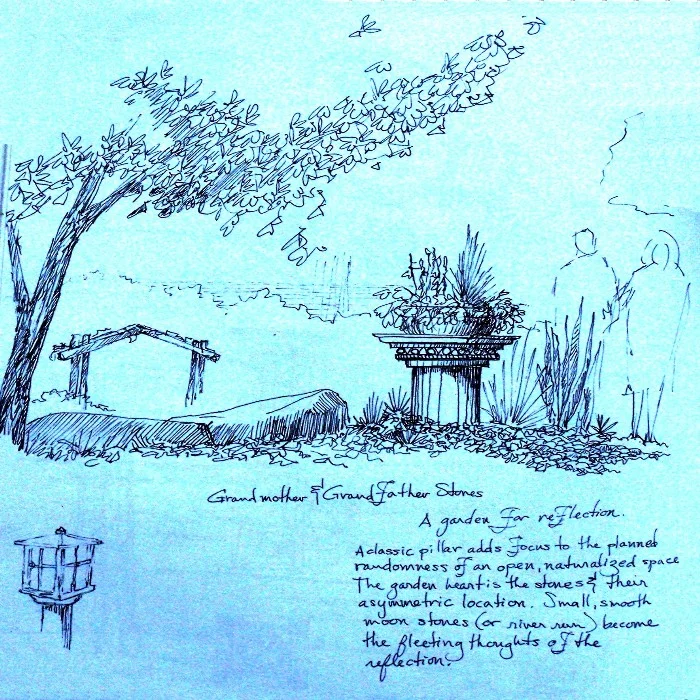 Grandmother & Grandfather Stones
A garden for reflection.
A classic pillar adds focus to the planned
randomness of an open, naturalized space
The garden heart is the stones & their
asymmetric location. Small, smooth
moon stones (or river run) become
the fleeting thoughts of the
reflection.